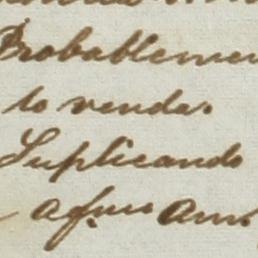 Probablemen
lo venda.
Suplicando
afmo Am